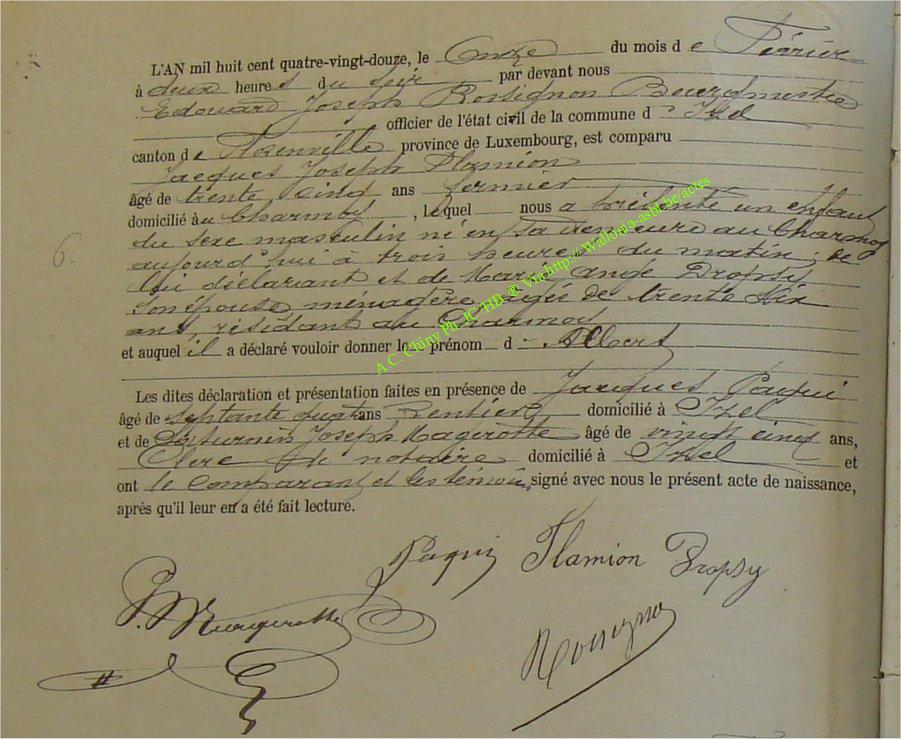 L'AN mil huit cent quatre-vingt-douze, le Onze du mois d e Février
à deux heure s du soir par devant nous
Edouard Joseph Rossignon Bourgmestre
officier de l'état civil de la commune d' Izel
canton d e Florenville province de Luxembourg, est comparu
Jacques Joseph Flamion
âgé de trente cinq ans fermier
domicilié au Charmoy, lequel nous a présenté un enfant
du sexe masculin né en sa demeure au Charmoy
6. aujourd'hui à trois heures du matin, de
lui déclarant et de Marie Ange Dropsy
son épouse, ménagère, âgée de trente six
ans, résidant au Charmoy
et auquel il a déclaré vouloir donner le prénom d' Albert
Les dites déclaration et présentation faites en présence de Jacques Paqui
âgé de septante quatre ans Rentier domicilié à Izel
et de Saturnin Joseph Magerotte âgé de vingt cinq ans,
Clerc de notaire domicilié à Izel et
ont le comparant et les témoins signé avec nous le présent acte de naissance,
après qu'il leur en a été fait lecture.
Paqui Flamion Dropsy
Magerotte
Rossignon
A.C. Chiny Ph. JC HB @ Via http://Wallonia-asbl.be/actes